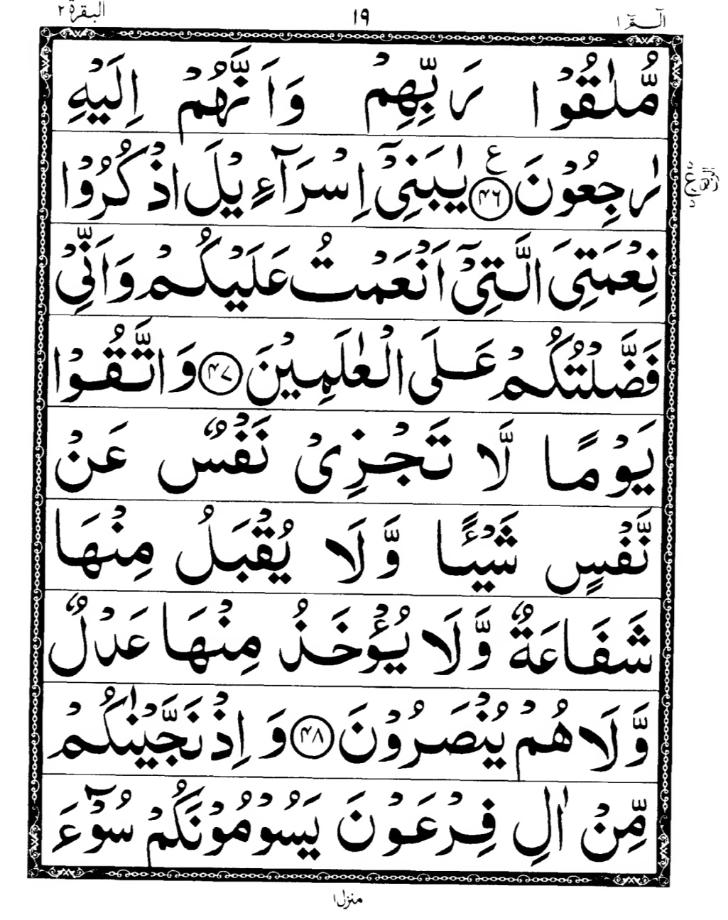 الٓـمّٓ ١ ١٩ البقرة ٢
مُّلٰقُوْا رَبِّهِمْ وَاَنَّهُمْ اِلَيْهِ
رٰجِعُوْنَ ﴿۴۶﴾ ع يٰبَنِىْٓ اِسْرَآءِيْلَ اذْكُرُوْا
نِعْمَتِىَ الَّتِىْٓ اَنْعَمْتُ عَلَيْكُمْ وَاَنِّىْ
فَضَّلْتُكُمْ عَلَى الْعٰلَمِيْنَ ﴿۴۷﴾ وَاتَّقُوْا
يَوْمًا لَّا تَجْزِىْ نَفْسٌ عَنْ
نَّفْسٍ شَيْـًٔا وَّلَا يُقْبَلُ مِنْهَا
شَفَاعَةٌ وَّلَا يُؤْخَذُ مِنْهَا عَدْلٌ
وَّلَا هُمْ يُنْصَرُوْنَ ﴿۴۸﴾ وَاِذْ نَجَّيْنٰكُمْ
مِّنْ اٰلِ فِرْعَوْنَ يَسُوْمُوْنَكُمْ سُوْٓءَ
منزل ١